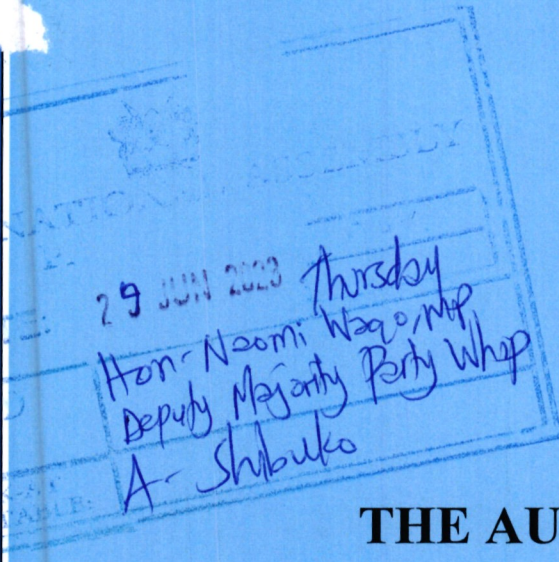 NATIONAL ASSEMBLY
29 JUN 2023 Thursday
Hon. Naomi Waqo, MP,
Deputy Majority Party Whip
A. Shibuko
THE AU